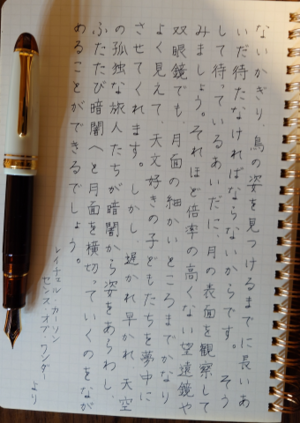 ないかぎり、鳥の姿を見つけるまでに長いあ
いだ待たなければならないからです。そう
して待っているあいだに、月の表面を観察して
みましょう。それほど倍率の高くない望遠鏡や
双眼鏡でも、月面の細かいところまでかなり
よく見えて、天文好きの子どもたちを夢中に
させてくれます。しかし、遅かれ早かれ、天空
の孤独な旅人たちが暗闇から姿をあらわし、
ふたたび暗闇へと月面を横切っていくのをなが
めることができるでしょう。
レイチェル・カーソン
センス・オブ・ワンダー
より